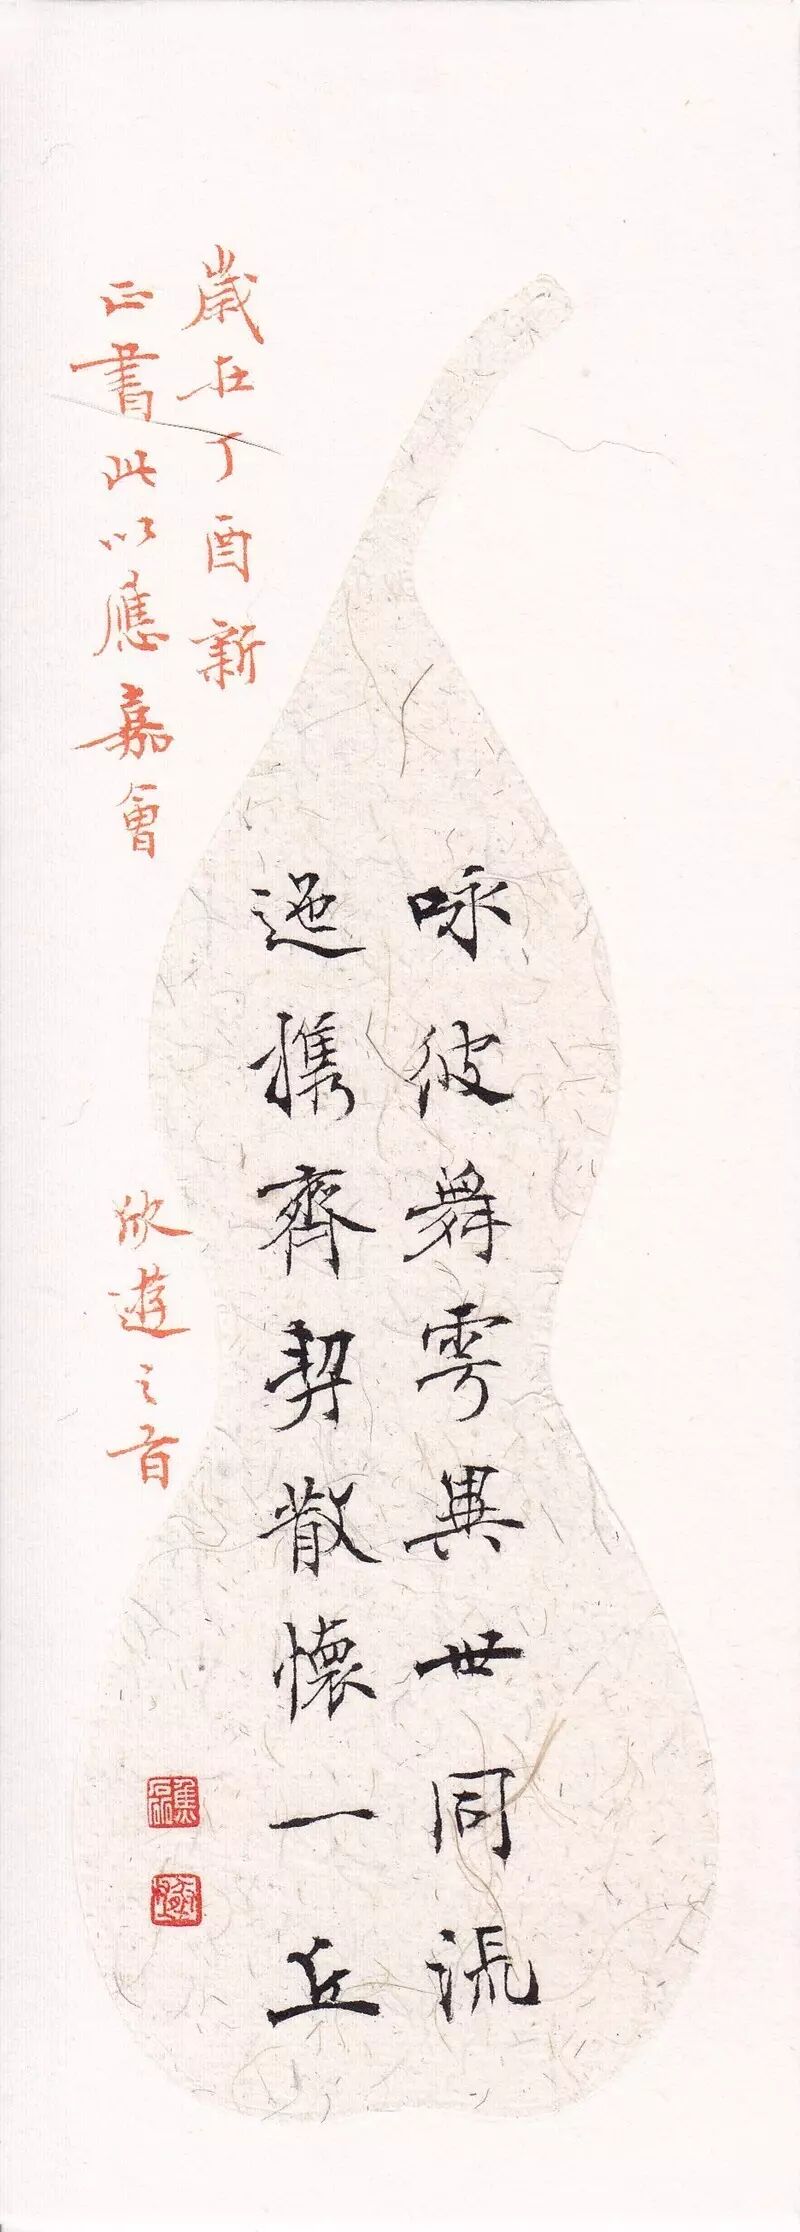 咏彼舞雩異世同流
迺携齊契散懷一丘
歲在丁酉新
正書此以應嘉會
欣遊之首